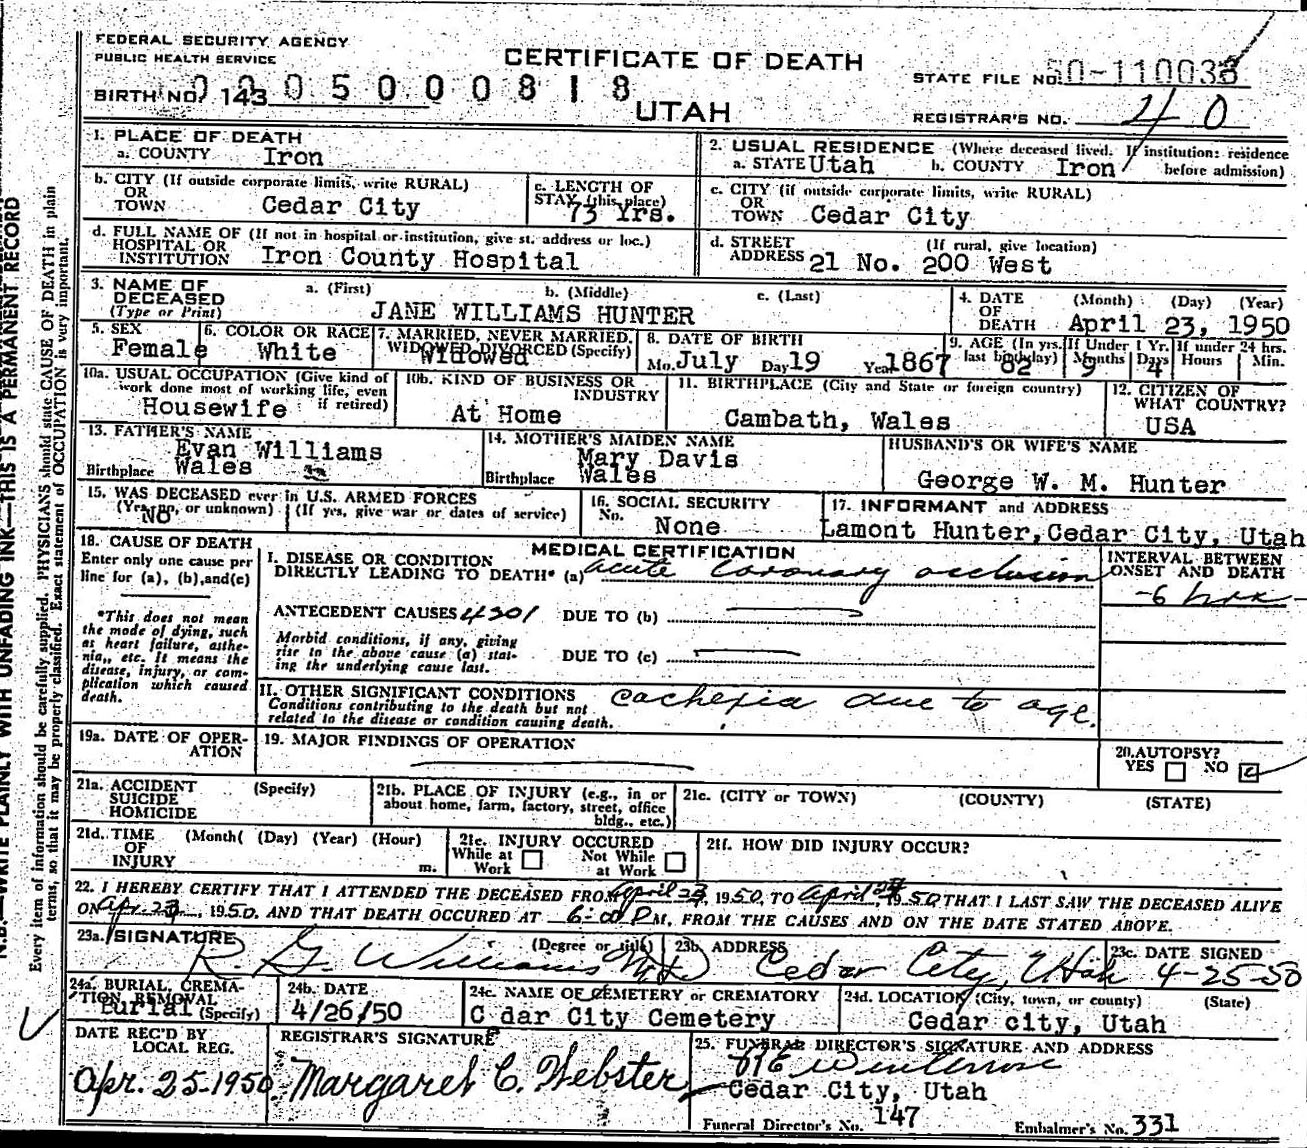 FEDERAL SECURITY AGENCY
PUBLIC HEALTH SERVICE
CERTIFICATE OF DEATH
STATE FILE NO. 50-110033
BIRTH NO. 143
0 0 0 5 0 0 0 8 1 8
UTAH
REGISTRAR'S NO. 40
1. PLACE OF DEATH
a. COUNTY Iron
2. USUAL RESIDENCE (Where deceased lived. If institution: residence before admission)
a. STATE Utah b. COUNTY Iron
b. CITY (If outside corporate limits, write RURAL)
OR
TOWN Cedar City
c. LENGTH OF
STAY (this place)
73 Yrs.
c. CITY (if outside corporate limits, write RURAL)
OR
TOWN Cedar City
d. FULL NAME OF (If not in hospital or institution, give st. address or loc.)
HOSPITAL OR
INSTITUTION Iron County Hospital
d. STREET (If rural, give location)
ADDRESS 21 No. 200 West
3. NAME OF
DECEASED
(Type or Print)
a. (First) b. (Middle) c. (Last)
JANE WILLIAMS HUNTER
4. DATE
OF
DEATH
(Month) (Day) (Year)
April 23, 1950
5. SEX
Female
6. COLOR OR RACE
White
7. MARRIED, NEVER MARRIED,
WIDOWED DIVORCED (Specify)
Widowed
8. DATE OF BIRTH
Mo. July Day 19 Year 1867
9. AGE (In yrs. last birthday)
82
If Under 1 Yr.
Months 9 Days 4
If under 24 hrs.
Hours Min.
10a. USUAL OCCUPATION (Give kind of
work done most of working life, even
if retired)
Housewife
10b. KIND OF BUSINESS OR
INDUSTRY
At Home
11. BIRTHPLACE (City and State or foreign country)
Cambath, Wales
12. CITIZEN OF
WHAT COUNTRY?
USA
13. FATHER'S NAME
Evan Williams
Birthplace Wales
14. MOTHER'S MAIDEN NAME
Mary Davis
Birthplace Wales
HUSBAND'S OR WIFE'S NAME
George W. M. Hunter
15. WAS DECEASED ever in U.S. ARMED FORCES
(Yes, no, or unknown) (If yes, give war or dates of service)
No
16. SOCIAL SECURITY
No.
None
17. INFORMANT and ADDRESS
Lamont Hunter, Cedar City, Utah
18. CAUSE OF DEATH
Enter only one cause per
line for (a), (b), and (c)
*This does not mean
the mode of dying, such
as heart failure, asthe-
nia,, etc. It means the
disease, injury, or com-
plication which caused
death.
MEDICAL CERTIFICATION
I. DISEASE OR CONDITION
DIRECTLY LEADING TO DEATH* (a) acute coronary occlusion
INTERVAL BETWEEN
ONSET AND DEATH
-6 hrs-
ANTECEDENT CAUSES 4201 DUE TO (b)
Morbid conditions, if any, giving
rise to the above cause (a) stat-
ing the underlying cause last.
DUE TO (c)
II. OTHER SIGNIFICANT CONDITIONS
Conditions contributing to the death but not
related to the disease or condition causing death.
cachexia due to age.
19a. DATE OF OPER-
ATION
19. MAJOR FINDINGS OF OPERATION
20. AUTOPSY?
YES NO
21a. ACCIDENT (Specify)
SUICIDE
HOMICIDE
21b. PLACE OF INJURY (e.g., in or
about home, farm, factory, street, office
bldg., etc.)
21c. (CITY or TOWN) (COUNTY) (STATE)
21d. TIME (Month( (Day) (Year) (Hour)
OF
INJURY m.
21e. INJURY OCCURED
While at Work Not While at Work
21f. HOW DID INJURY OCCUR?
22. I HEREBY CERTIFY THAT I ATTENDED THE DECEASED FROM April 23, 1950, TO April, 1950 THAT I LAST SAW THE DECEASED ALIVE
ON Apr. 23, 1950. AND THAT DEATH OCCURED AT 6-00 P M., FROM THE CAUSES AND ON THE DATE STATED ABOVE.
23a. SIGNATURE (Degree or title)
R. G. Williams M.D.
23b. ADDRESS
Cedar City, Utah
23c. DATE SIGNED
4-25-50
24a. BURIAL, CREMA-
TION, REMOVAL
Burial (Specify)
24b. DATE
4/26/50
24c. NAME OF CEMETERY or CREMATORY
C dar City Cemetery
24d. LOCATION (City, town, or county) (State)
Cedar city, Utah
DATE REC'D BY
LOCAL REG.
Apr. 25-1950
REGISTRAR'S SIGNATURE
Margaret C. Webster
25. FUNERAL DIRECTOR'S SIGNATURE AND ADDRESS
Cedar City, Utah
Funeral Director's No. 147 Embalmer's No. 331
N.B.—WRITE PLAINLY WITH UNFADING INK—THIS IS A PERMANENT RECORD
Every item of information should be carefully supplied. PHYSICIANS should state CAUSE OF DEATH in plain
terms, so that it may be properly classified. Exact statement of OCCUPATION is very important.